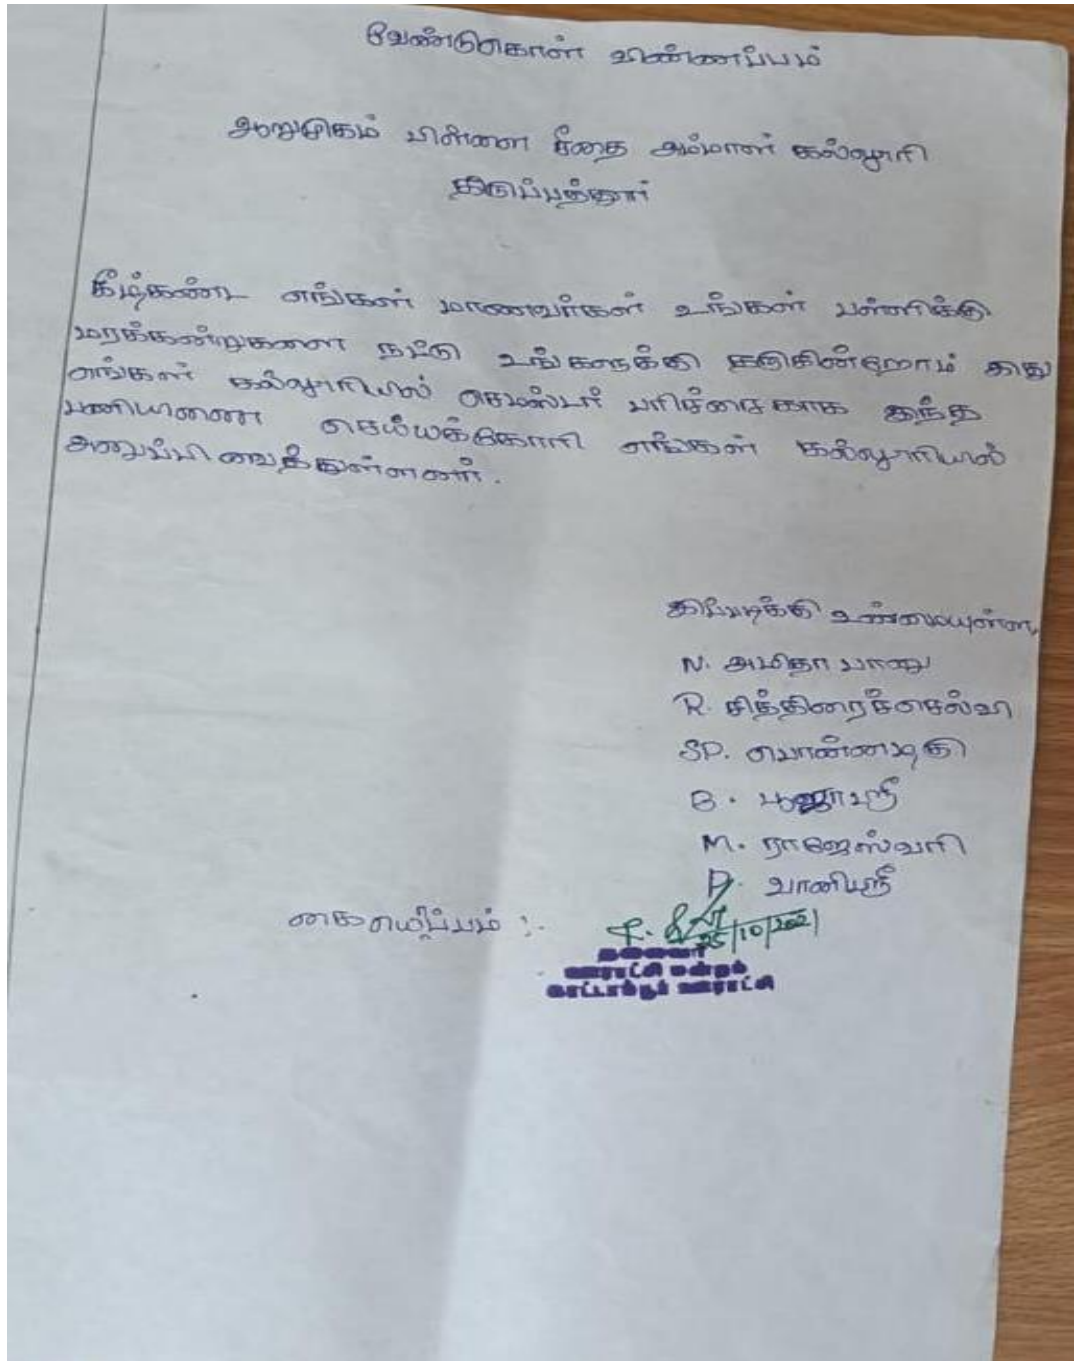 வேண்டுகொள் விண்ணப்பம்
ஆறுமுகம் பிள்ளை சீதை அம்மாள் கல்லூரி
திருப்பத்தூர்
கீழ்கண்ட எங்கள் மாணவர்கள் உங்கள் பள்ளிக்கு
மரக்கன்றுகளை நட்டு உங்களுக்கு தருகின்றோம் இது
எங்கள் கல்லூரியில் செமஸ்டர் பரிச்சைகாக இந்த
பணியினை செய்யக்கோரி எங்கள் கல்லூரியில்
அனுப்பி வைத்துள்ளனர்.
இப்படிக்கு உண்மையுள்ள,
N. அமிதா பானு
R. சித்திரைச்செல்வி
SP. பொன்னழகி
B. பூஜாஸ்ரீ
M. ராஜேஸ்வரி
P. வானிஸ்ரீ
கையெழுப்பம் :-
25/10/2021
தலைவர்
ஊராட்சி மன்றம்
காட்டாம்பூர் ஊராட்சி